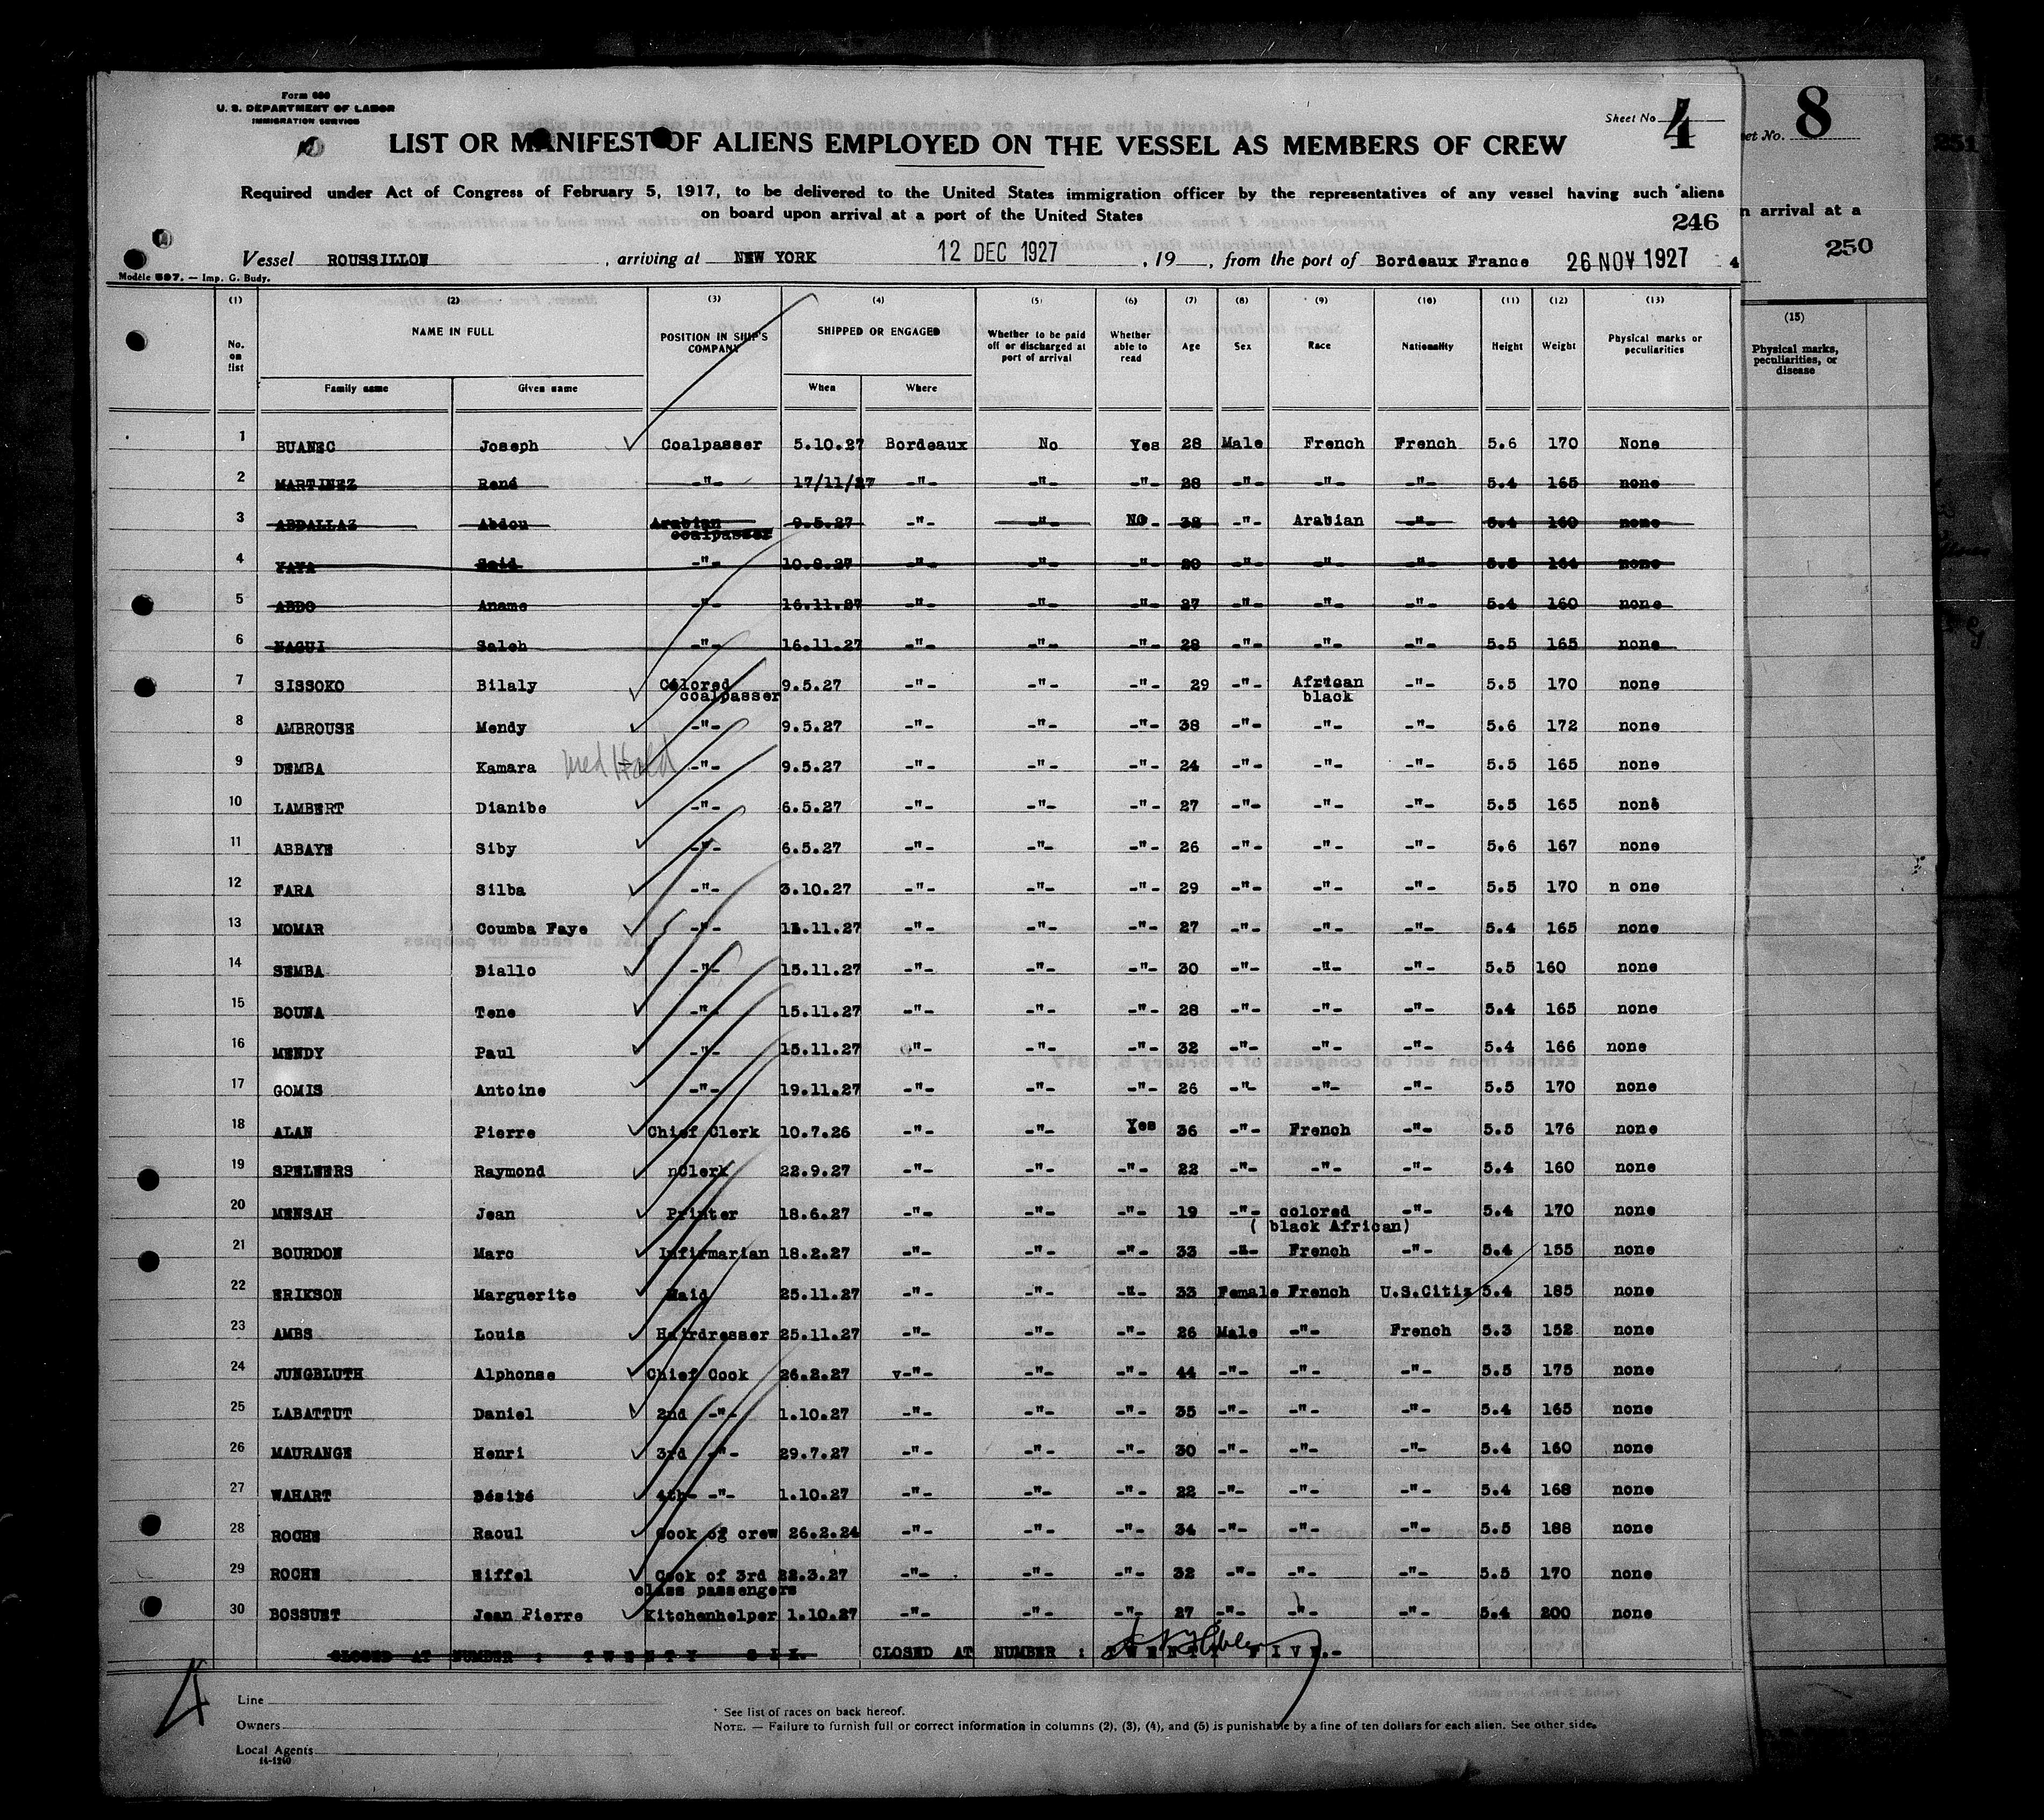 Form 680
U. S. DEPARTMENT OF LABOR
IMMIGRATION SERVICE
Sheet No 4
LIST OR MANIFEST OF ALIENS EMPLOYED ON THE VESSEL AS MEMBERS OF CREW
Required under Act of Congress of February 5, 1917, to be delivered to the United States immigration officer by the representatives of any vessel having such aliens
on board upon arrival at a port of the United States
246
Vessel ROUSSILLON , arriving at NEW YORK 12 DEC 1927 , 19 , from the port of Bordeaux France 26 NOV 1927 4
Modèle 597. — Imp. G. Budy.
(1) (2) (3) (4) (5) (6) (7) (8) (9) (10) (11) (12) (13)
No. on list NAME IN FULL POSITION IN SHIP'S COMPANY SHIPPED OR ENGAGED Whether to be paid off or discharged at port of arrival Whether able to read Age Sex Race Nationality Height Weight Physical marks or peculiarities
Family name Given name When Where
1 BUANEC Joseph Coalpasser 5.10.27 Bordeaux No Yes 28 Male French French 5.6 170 None
2 MARTINEZ René -"- 17/11/27 -"- -"- -"- 28 -"- -"- -"- 5.4 165 none
3 ABDALLAZ Abdou Arabian coalpasser 9.5.27 -"- -"- NO - 32 -"- Arabian -"- 5.4 160 none
4 YAYA Said -"- 10.8.27 -"- -"- -"- 20 -"- -"- -"- 5.5 164 none
5 ABDO Aname -"- 16.11.27 -"- -"- -"- 27 -"- -"- -"- 5.4 160 none
6 NAGUI Saleh -"- 16.11.27 -"- -"- -"- 28 -"- -"- -"- 5.5 165 none
7 SISSOKO Bilaly Colored coalpasser 9.5.27 -"- -"- -"- 29 -"- African black -"- 5.5 170 none
8 AMBROUSE Mendy -"- 9.5.27 -"- -"- -"- 38 -"- -"- -"- 5.6 172 none
9 DEMBA Kamara med Hold -"- 9.5.27 -"- -"- -"- 24 -"- -"- -"- 5.5 165 none
10 LAMBERT Dianibe -"- 6.5.27 -"- -"- -"- 27 -"- -"- -"- 5.5 165 none
11 ABBAYE Siby -"- 6.5.27 -"- -"- -"- 26 -"- -"- -"- 5.6 167 none
12 FARA Silba -"- 3.10.27 -"- -"- -"- 29 -"- -"- -"- 5.5 170 n one
13 MOMAR Coumba Faye -"- 11.11.27 -"- -"- -"- 27 -"- -"- -"- 5.4 165 none
14 SEMBA Diallo -"- 15.11.27 -"- -"- -"- 30 -"- -"- -"- 5.5 160 none
15 BOUNA Tene -"- 15.11.27 -"- -"- -"- 28 -"- -"- -"- 5.4 165 none
16 MENDY Paul -"- 15.11.27 -"- -"- -"- 32 -"- -"- -"- 5.4 166 none
17 GOMIS Antoine -"- 19.11.27 -"- -"- -"- 26 -"- -"- -"- 5.5 170 none
18 ALAN Pierre Chief Clerk 10.7.26 -"- -"- Yes 36 -"- French -"- 5.5 176 none
19 SPELEERS Raymond nClerk 22.9.27 -"- -"- -"- 22 -"- -"- -"- 5.4 160 none
20 MENSAH Jean Printer 18.6.27 -"- -"- -"- 19 -"- colored ( black African) -"- 5.4 170 none
21 BOURDON Marc Infirmarian 18.2.27 -"- -"- -"- 33 -"- French -"- 5.4 155 none
22 ERIKSON Marguerite Maid 25.11.27 -"- -"- -"- 33 Female French U.S.Citiz 5.4 185 none
23 AMBS Louis Hairdresser 25.11.27 -"- -"- -"- 26 Male -"- French 5.3 152 none
24 JUNGBLUTH Alphonse Chief Cook 26.2.27 v-"- -"- -"- 44 -"- -"- -"- 5.5 175 none
25 LABATTUT Daniel 2nd -"- 1.10.27 -"- -"- -"- 35 -"- -"- -"- 5.4 165 none
26 MAURANGE Henri 3rd -"- 29.7.27 -"- -"- -"- 30 -"- -"- -"- 5.4 160 none
27 WAHART Désiré 4th- -"- 1.10.27 -"- -"- -"- 22 -"- -"- -"- 5.4 168 none
28 ROCHE Raoul Cook of crew 26.2.24 -"- -"- -"- 34 -"- -"- -"- 5.5 188 none
29 ROCHE Eiffel Cook of 3rd class passengers 22.3.27 -"- -"- -"- 32 -"- -"- -"- 5.5 170 none
30 BOSSUET Jean Pierre Kitchenhelper 1.10.27 -"- -"- -"- 27 -"- -"- -"- 5.4 200 none
CLOSED AT NUMBER : TWENTY SIX. CLOSED AT NUMBER : TWENTY FIVE.-
4
Line
Owners
Local Agents
14-1240
* See list of races on back hereof.
NOTE. — Failure to furnish full or correct information in columns (2), (3), (4), and (5) is punishable by a fine of ten dollars for each alien. See other side.
et No. 8
n arrival at a
250
(15)
Physical marks, peculiarities, or disease
251